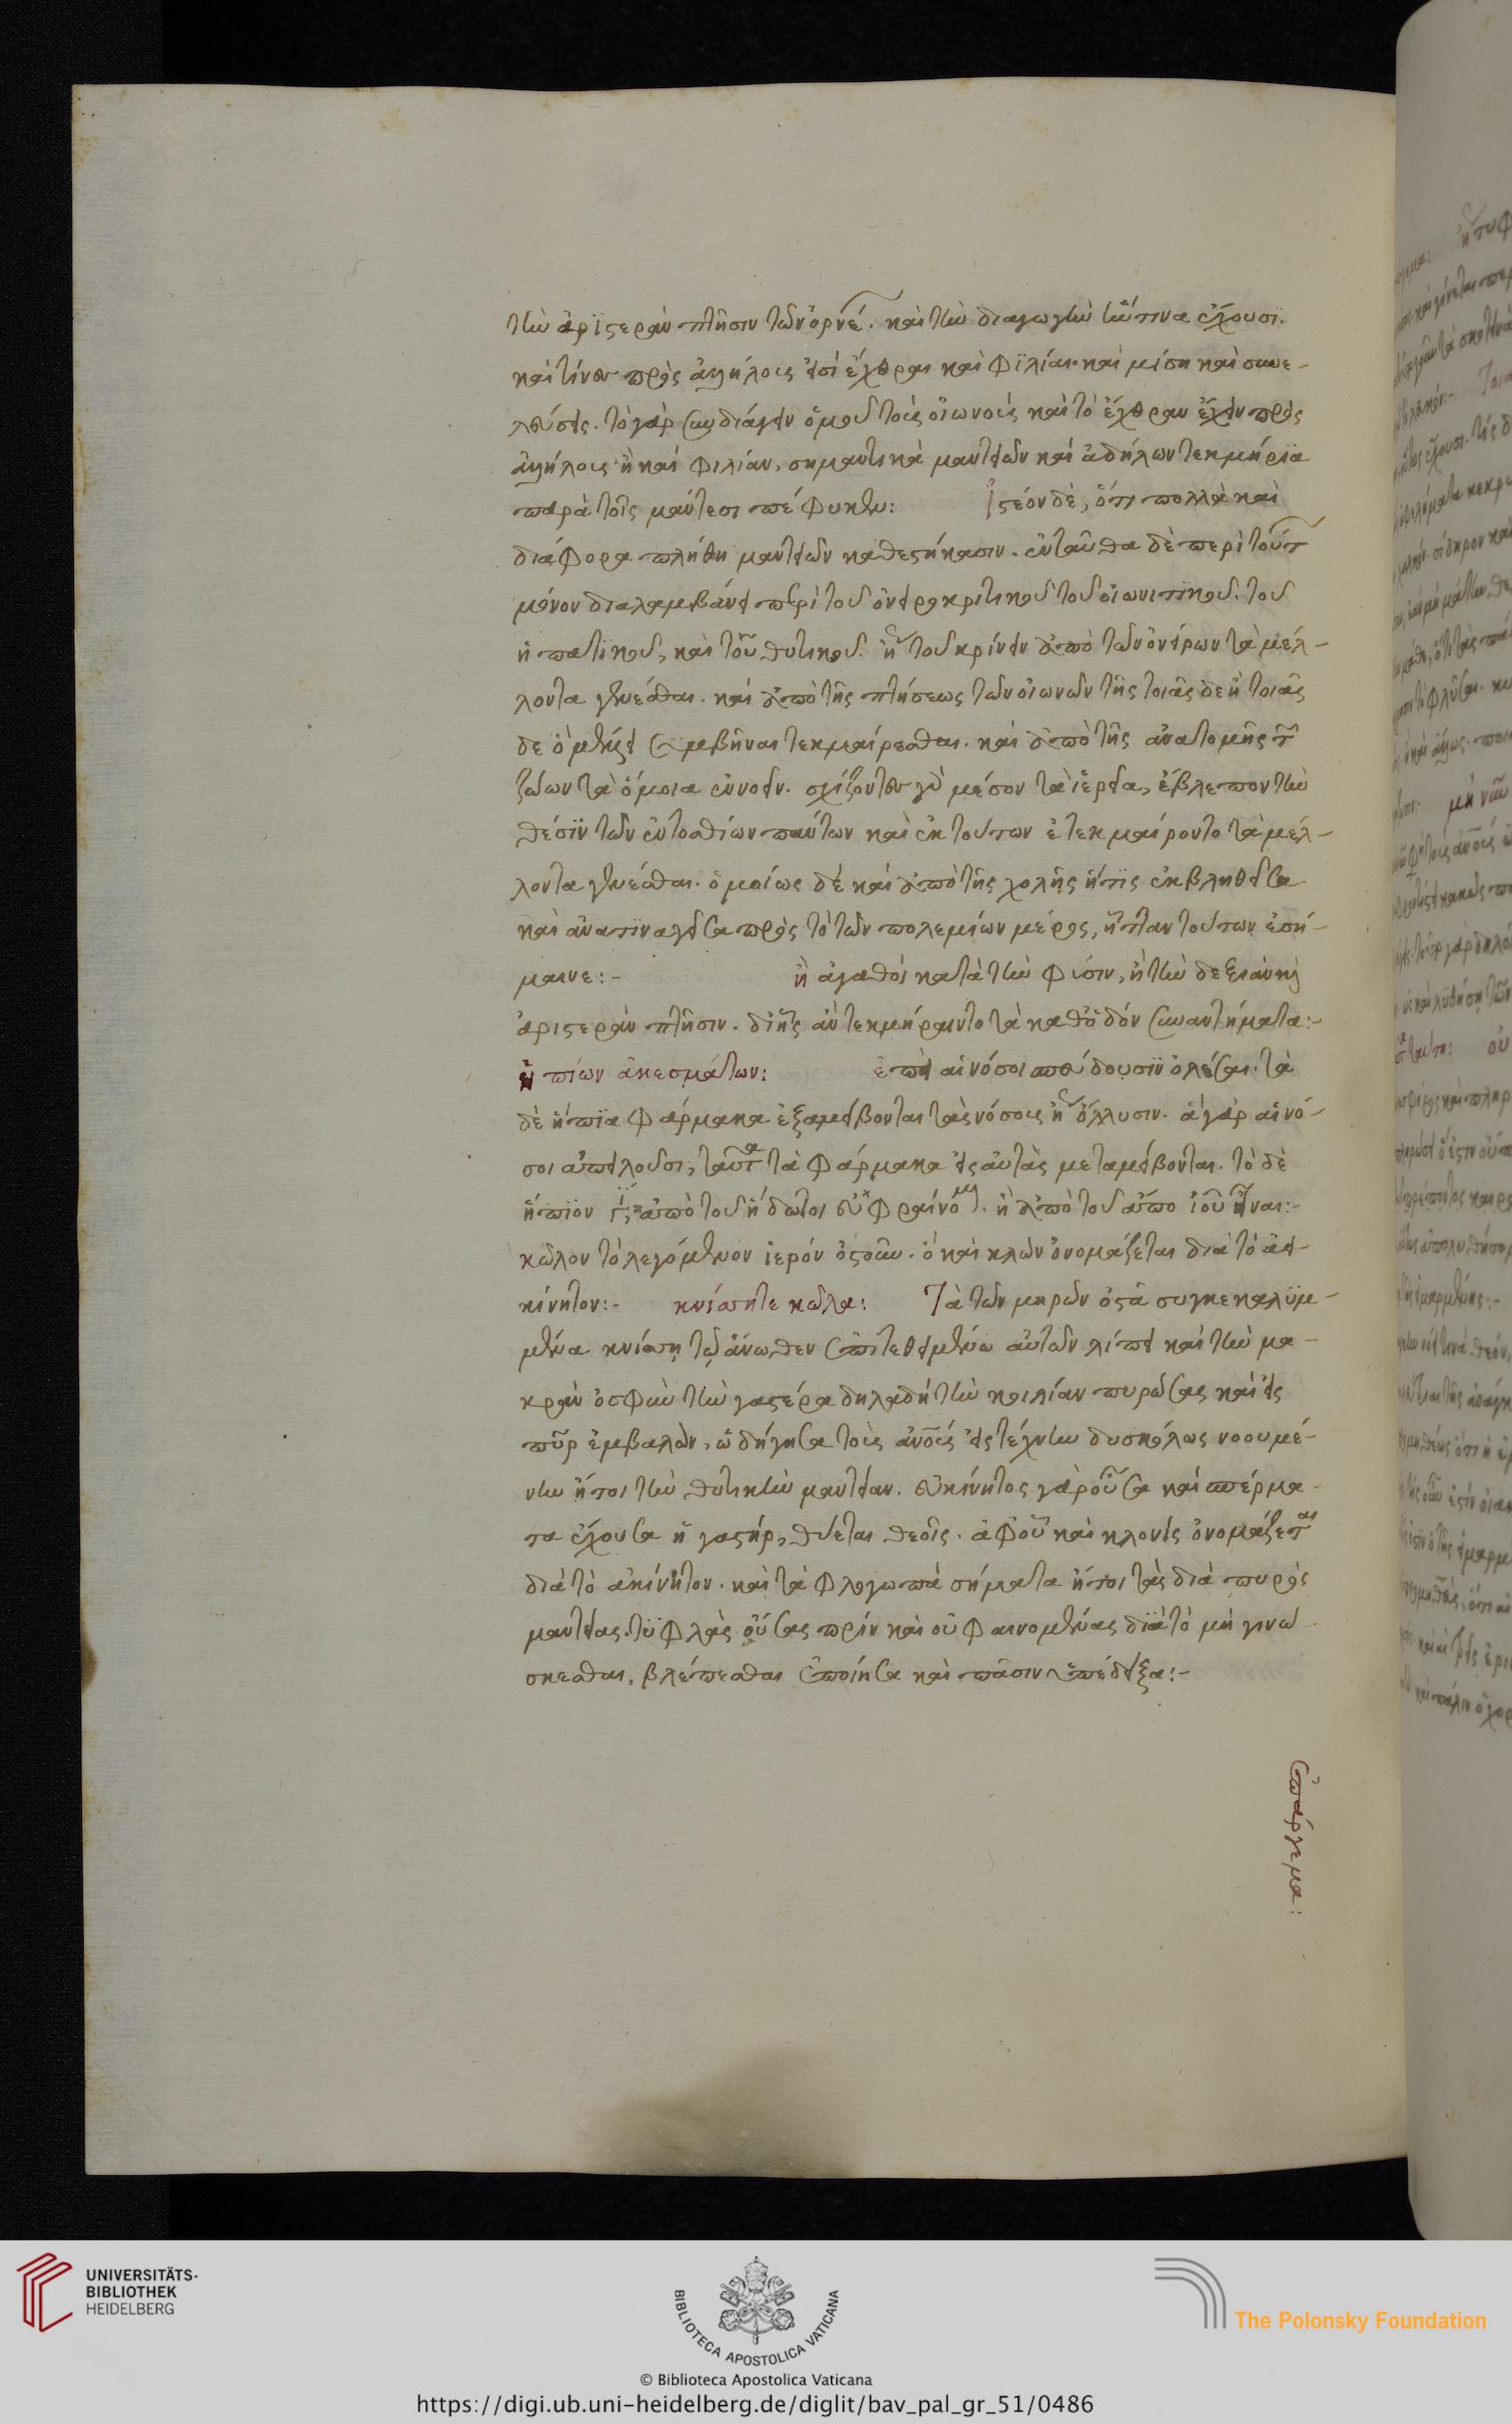 τὴν ἀριστερὰν πτῆσιν τῶν ὀρνέ. καὶ τὴν διαγωγὴν ἥντινα ἔχουσι.
καὶ τίνες πρὸς ἀλλήλοις εἰσὶ ἔχθραι καὶ φιλίαι. καὶ μίση καὶ συνε-
λεύσεις. τὸ γὰρ συνδιάγειν ὁμοῦ τοῖς οἰωνοῖς καὶ τὸ ἔχθραν ἔχειν πρὸς
ἀλλήλοις ἢ καὶ φιλίαν, σημαντικὰ μαντειῶν καὶ ἀδήλων τεκμήρια
παρὰ τοῖς μάντεσι πέφυκεν: Ἰστέον δὲ, ὅτι πολλὰ καὶ
διάφορα πλήθη μαντειῶν καθεστήκασιν. ἐνταῦθα δὲ περὶ τούτ
μόνον διαλαμβάνει περὶ τοῦ ὀνειροκριτικοῦ τοῦ οἰωνιστικοῦ. τοῦ
ἡπατικοῦ, καὶ τοῦ θυτικοῦ. ἢ τοῦ κρίνειν ἀπὸ τῶν ὀνείρων τὰ μέλ-
λοντα γενέσθαι. καὶ ἀπὸ τῆς πτήσεως τῶν οἰωνῶν τῆς τοιᾶς δε ἢ τοιᾶς
δε ὃ μέλλει συμβῆναι τεκμαίρεσθαι. καὶ ἀπὸ τῆς ἀνατομῆς τ
ζώων τὰ ὅμοια ἐννοεῖν. σχίζοντες γὰρ μέσον τὰ ἱερεῖα, ἔβλεπον τὴν
θέσιν τῶν ἐντοσθίων πάντων καὶ ἐκ τούτων ἐτεκμαίροντο τὰ μέλ-
λοντα γενέσθαι. ὁμοίως δὲ καὶ ἀπὸ τῆς χολῆς ἥτις ἐκβληθεῖσα
καὶ ἀνατιναγεῖσα πρὸς τὸ τῶν πολεμίων μέρος, ἧτταν τούτων ἐσή-
μαινε:- ἢ ἀγαθοὶ κατὰ τὴν φύσιν, ἢ τὴν δεξιὰν καὶ
ἀριστερὰν πτῆσιν. δι' ἧς ἂν τεκμήραιντο τὰ καθ' ὁδὸν συναντήματα:-
ἠπίων ἀκεσμάτων: ἐπεὶ αἱ νόσοι σπεύδουσιν ὀλέσαι. τὰ
δὲ ἤπια φάρμακα ἐξαμείβονται τὰς νόσους ἢ ὄλλυσιν. ἃ γὰρ αἱ νό-
σοι ἀπειλοῦσι, ταῦτα τὰ φάρμακα εἰς αὐτὰς μεταμείβονται. τὸ δὲ
ἤπιον ἀπὸ τοῦ ἥδω τοι εὐφραίνομ. ἢ ἀπὸ τοῦ ἄπο ἰοῦ εἶναι:-
κῶλον τὸ λεγόμενον ἱερὸν ὀστοῦν. ὃ καὶ κλὼν ὀνομάζεται διὰ τὸ ἀει-
κίνητον:- κνίσητε κῶλα: Τὰ τῶν μηρῶν ὀστᾶ συγκεκαλυμ-
μένα κνίσῃ τῷ ἄνωθεν ἐπιτεθειμένῳ αὐτῶν λίπει καὶ τὴν μα-
κρὰν ὀσφὺν τὴν γαστέρα δηλαδὴ τὴν κοιλίαν πυρώσας καὶ εἰς
πῦρ ἐμβαλὼν, ὡδήγησα τοῖς ἀνοις εἰς τέχνην δυσκόλως νοουμέ-
νην ἤτοι τὴν θυτικὴν μαντείαν. εὐκίνητος γὰρ οὖσα καὶ σπέρμα-
τα ἔχουσα ἡ γαστήρ, θύεται θεοῖς. ἀφ' οὗ καὶ κλονὶς ὀνομάζεται
διὰ τὸ ἀκίνητον. καὶ τὰ φλογωπὰ σήματα ἤτοι τὰς διὰ πυρὸς
μαντείας. τυφλὰς οὔσας πρὶν καὶ οὐ φαινομένας διὰ τὸ μὴ γινώ-
σκεσθαι, βλέπεσθαι ἐποίησα καὶ πᾶσιν ἐπέδειξα:-
ἐπάργεμα:
UNIVERSITÄTS-
BIBLIOTHEK
HEIDELBERG
BIBLIOTECA APOSTOLICA VATICANA
The Polonsky Foundation
© Biblioteca Apostolica Vaticana
https://digi.ub.uni-heidelberg.de/diglit/bav_pal_gr_51/0486